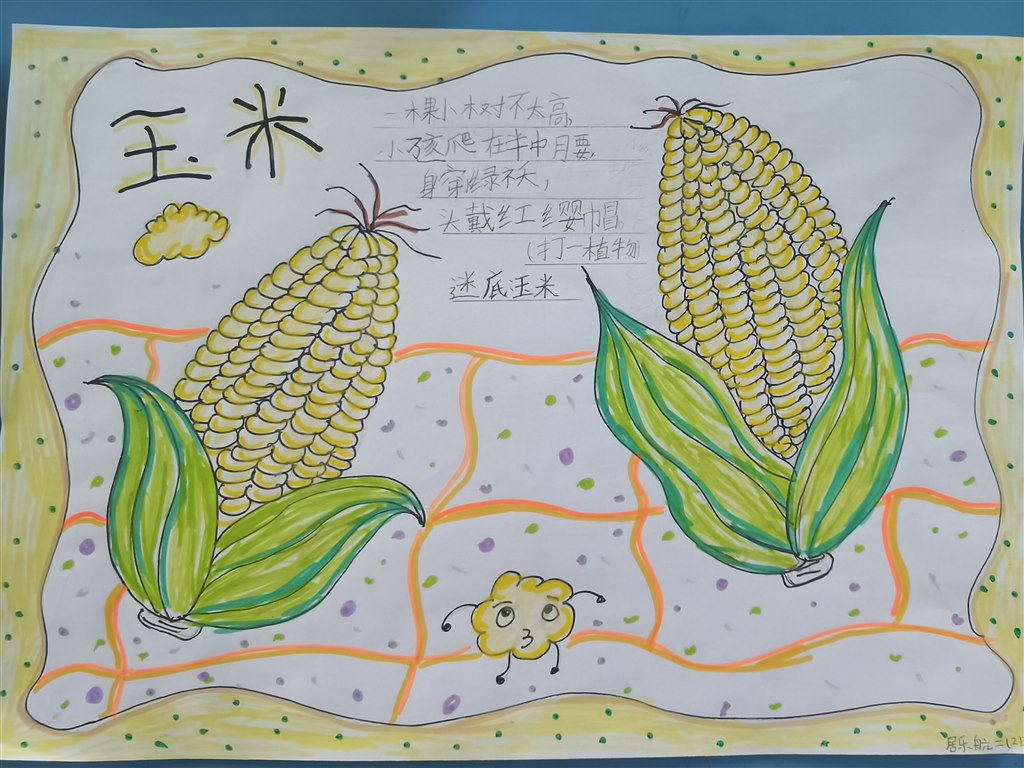 玉米
一棵小树不太高,
小孩爬在半中月要,
身穿绿衣,
头戴红缨帽。
(打一植物
迷底玉米
居乐航二(2)